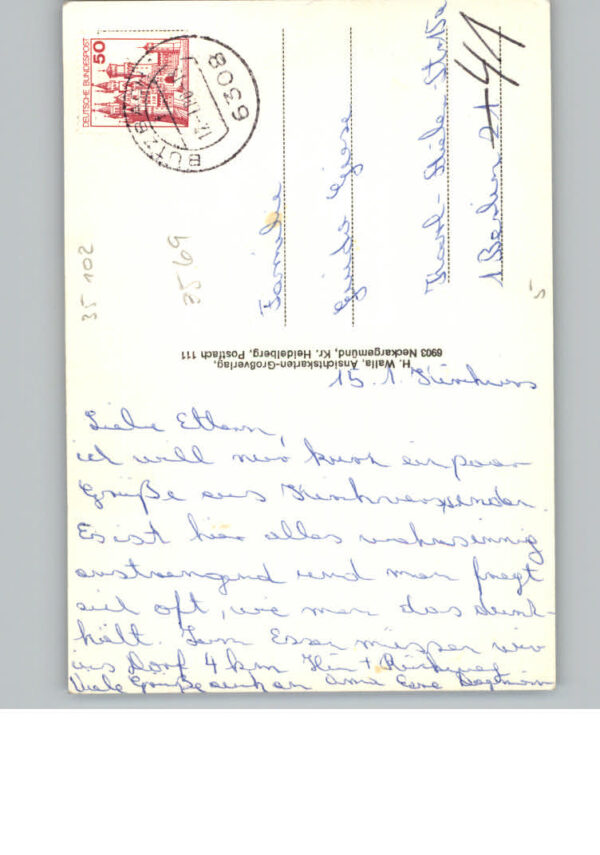 DEUTSCHE BUNDESPOST
50
6308
BUTZBACH
35 102
3569
Familie
Guido Giese
Karl-Stieler-Straße
1 Berlin 21 41
H. Walla, Ansichtskarten-Großverlag,
6903 Neckargemünd, Kr. Heidelberg, Postfach 111
15. 1.
Liebe Eltern,
ich will nur kurz ein paar
Grüße aus senden.
Es ist hier alles wahnsinnig
anstrengend und man fragt
sich oft, wie man das durch-
hält. Zum Essen müssen wir
ins Dorf 4 km Hin + Rückweg
Viele Grüße auch an Oma Eure Dagmar